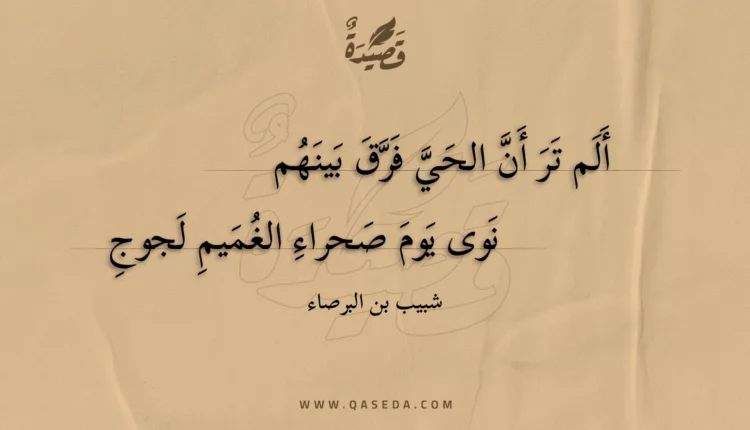 قَصِيْدَةٌ
أَلَم تَرَ أَنَّ الحَيَّ فَرَّقَ بَينَهُم
نَوى يَومَ صَحراءِ الغُمَيمِ لَجوجِ
شبيب بن البرصاء
WWW.QASEDA.COM